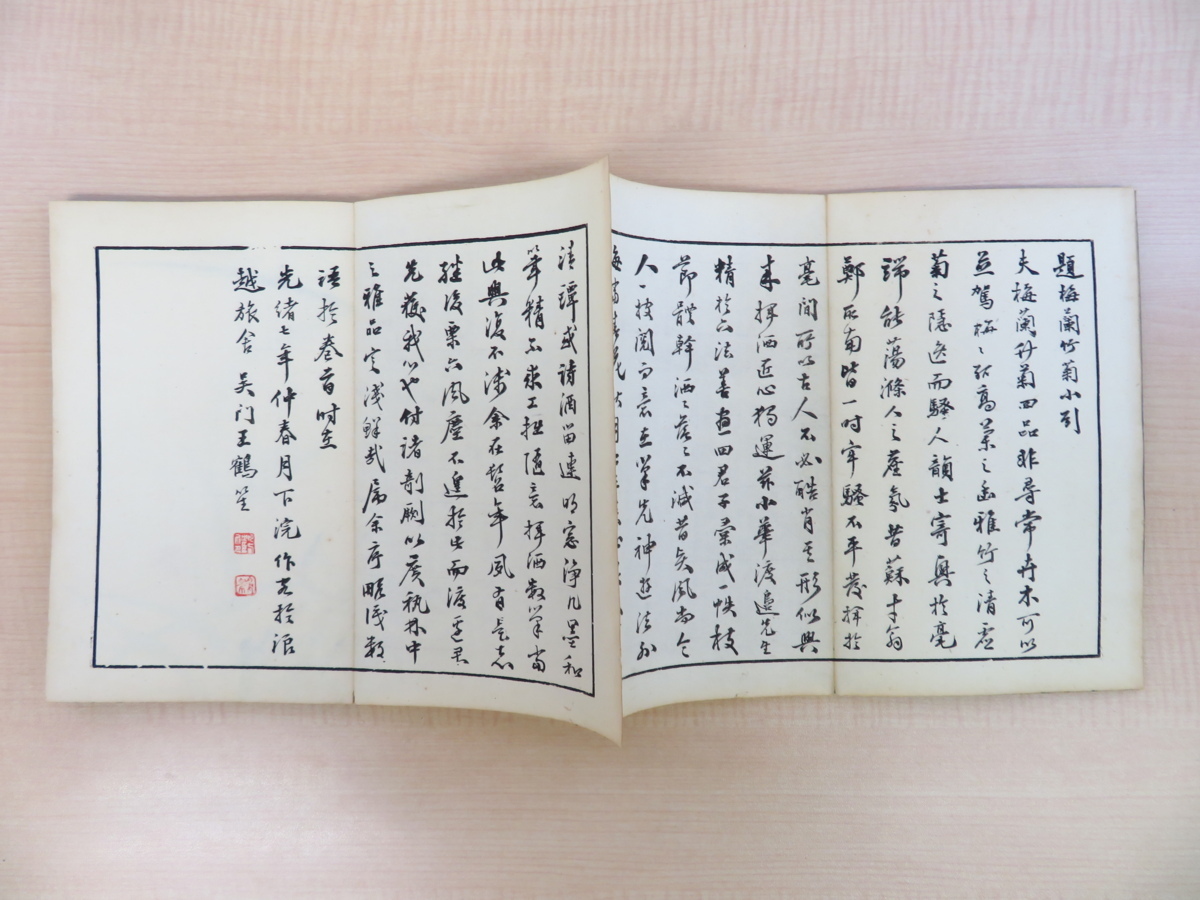 題梅蘭竹菊小引
夫梅蘭竹菊四品非尋常卉木可以
並駕梅之孤高蘭之幽雅竹之清虛
菊之隱逸而騷人韻士寄興於毫
端能蕩滌人之塵氛昔蘇才翁
鄭所南皆一時牢騷不平發揮於
毫間所以古人不必酷肖其形似興
來揮洒匠心獨運茲小華渡邉先生
精於六法善画四君子彙成一帙枝
節體幹洒之落之不減昔矣風尚令
人一披閱而意在筆先神遊法外
清譚或詩酒留連明窓淨几墨和
筆精不求工拙隨意揮洒數筆當
此興復不淺余在髫年夙有是志
繼後粟六風塵不遑於此而渡邉君
先獲我心也付諸剞劂以廣秇林中
之雅品定淺鮮哉屬余序畧識數
語於卷首时在
光緒七年仲春月下浣作者於滬
越旅舍 吴门王鶴笙